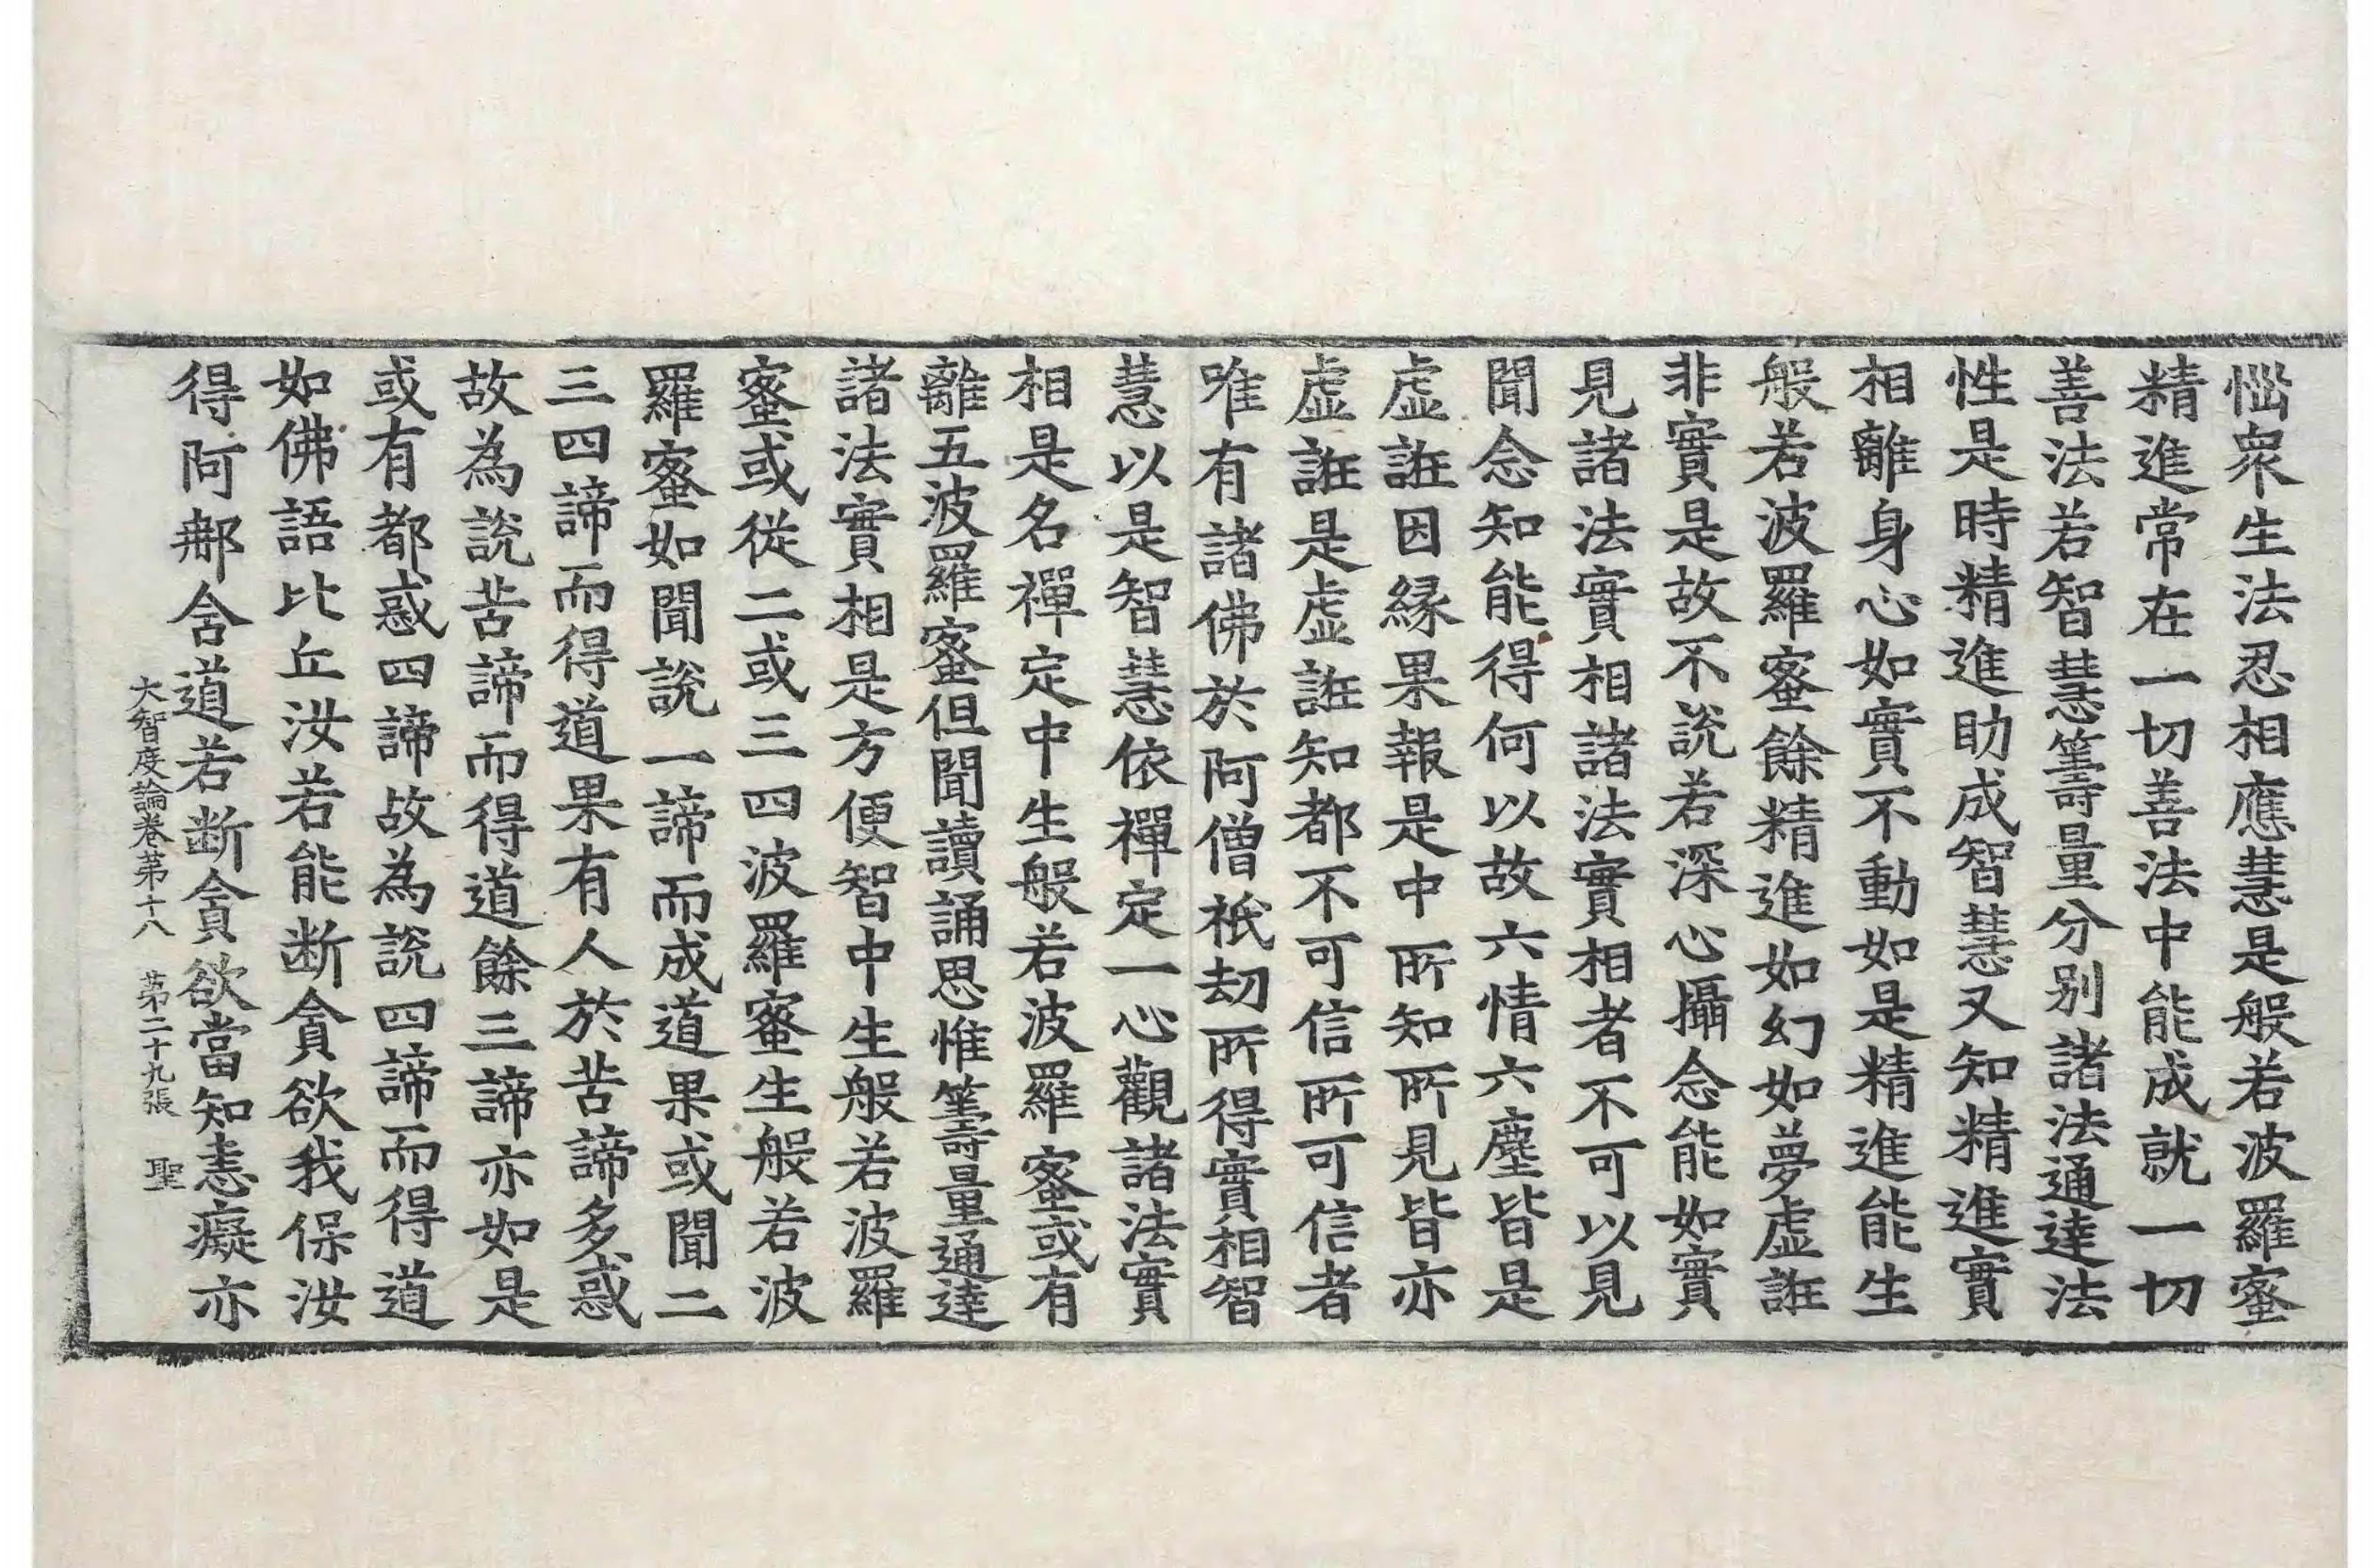 惱衆生法忍相應慧是般若波羅蜜
精進常在一切善法中能成就一切
善法若智慧籌量分別諸法通達法
性是時精進助成智慧又知精進實
相離身心如實不動如是精進能生
般若波羅蜜餘精進如幻如夢虛誑
非實是故不說若深心攝念能如實
見諸法實相諸法實相者不可以見
聞念知能得何以故六情六塵皆是
虛誑因緣果報是中所知所見皆亦
虛誑是虛誑知都不可信所可信者
唯有諸佛於阿僧祇劫所得實相智
慧以是智慧依禪定一心觀諸法實
相是名禪定中生般若波羅蜜或有
離五波羅蜜但聞讀誦思惟籌量通達
諸法實相是方便智中生般若波羅
蜜或從二或三四波羅蜜生般若波
羅蜜如聞說一諦而成道果或聞二
三四諦而得道果有人於苦諦多惑
故為說苦諦而得道餘三諦亦如是
或有都惑四諦故為說四諦而得道
如佛語比丘汝若能斷貪欲我保汝
得阿那含道若断貪欲當知恚癡亦
大智度論卷第十八 第二十九張 聖